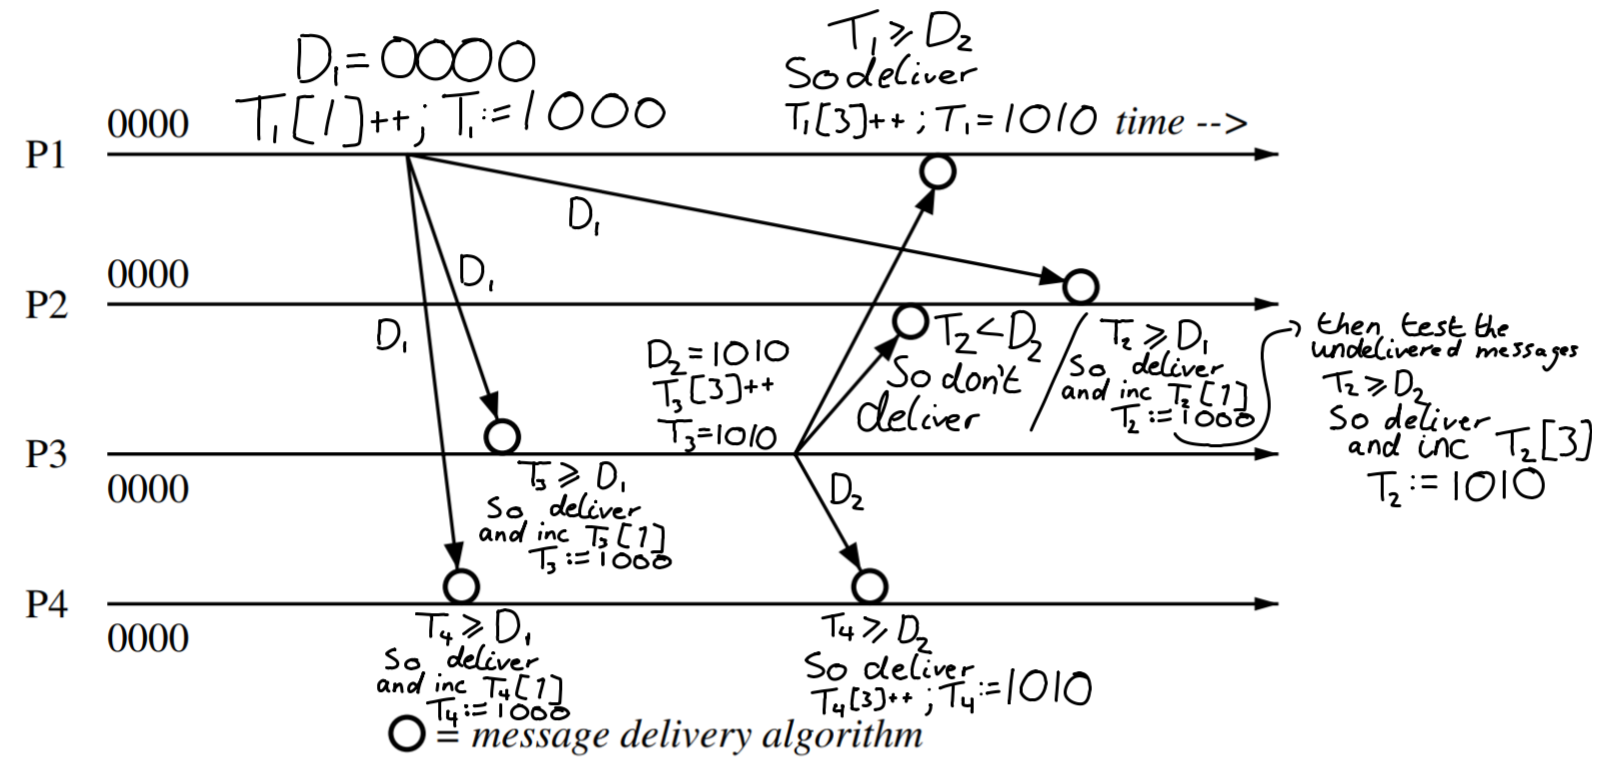 D₁=0000
T₁[1]++; T₁:=1000
T₁⩾D₂
So deliver
T₁[3]++; T₁=1010
time -->
0000
P1
D₁
0000
D₁
P2
D₁
T₂<D₂
So don't
deliver
T₂⩾D₁
So deliver
and inc T₂[1]
T₂:=1000
then test the
undelivered messages
T₂⩾D₂
So deliver
and inc T₂[3]
T₂:=1010
D₂=1010
T₃[3]++
T₃=1010
P3
0000
T₃⩾D₁
So deliver
and inc T₃[1]
T₃:=1000
D₂
P4
0000
T₄⩾D₁
So deliver
and inc T₄[1]
T₄:=1000
T₄⩾D₂
So deliver
T₄[3]++; T₄:=1010
= message delivery algorithm